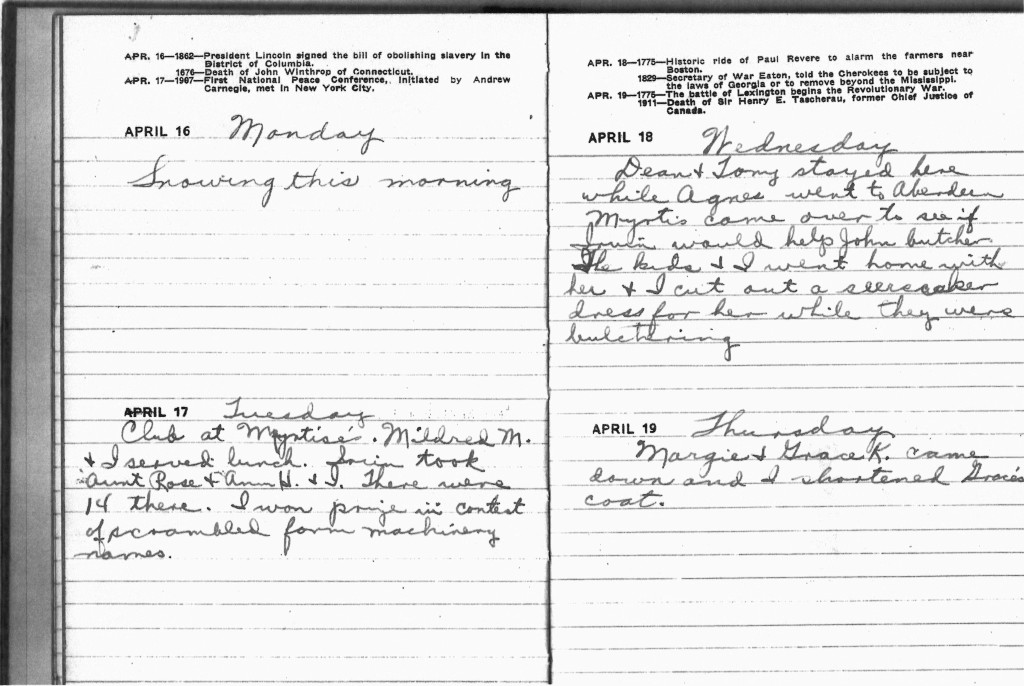 APR. 16—1862—President Lincoln signed the bill of obolishing slavery in the
District of Columbia.
1676—Death of John Winthrop of Connecticut.
APR. 17—1907—First National Peace Conference, initiated by Andrew
Carnegie, met in New York City.
APRIL 16 Monday
Snowing this morning
APRIL 17 Tuesday
Club at Myrtise's. Mildred M.
& I served lunch. Irvin took
Aunt Rose & Ann H. & I. There were
14 there. I won prize in contest
of scrambled farm machinery
names.
APR. 18—1775—Historic ride of Paul Revere to alarm the farmers near
Boston.
1829—Secretary of War Eaton, told the Cherokees to be subject to
the laws of Georgia or to remove beyond the Mississippi.
APR. 19—1775—The battle of Lexington begins the Revolutionary War.
1911—Death of Sir Henry E. Tascherau, former Chief Justice of
Canada.
APRIL 18 Wednesday
Dean & Tomy stayed here
while Agnes went to Aberdeen
Myrtis came over to see if
Irvin would help John butcher.
The kids & I went home with
her & I cut out a seersucker
dress for her while they were
butchering
APRIL 19 Thursday
Margie & Grace K. came
down and I shortened Grace's
coat.